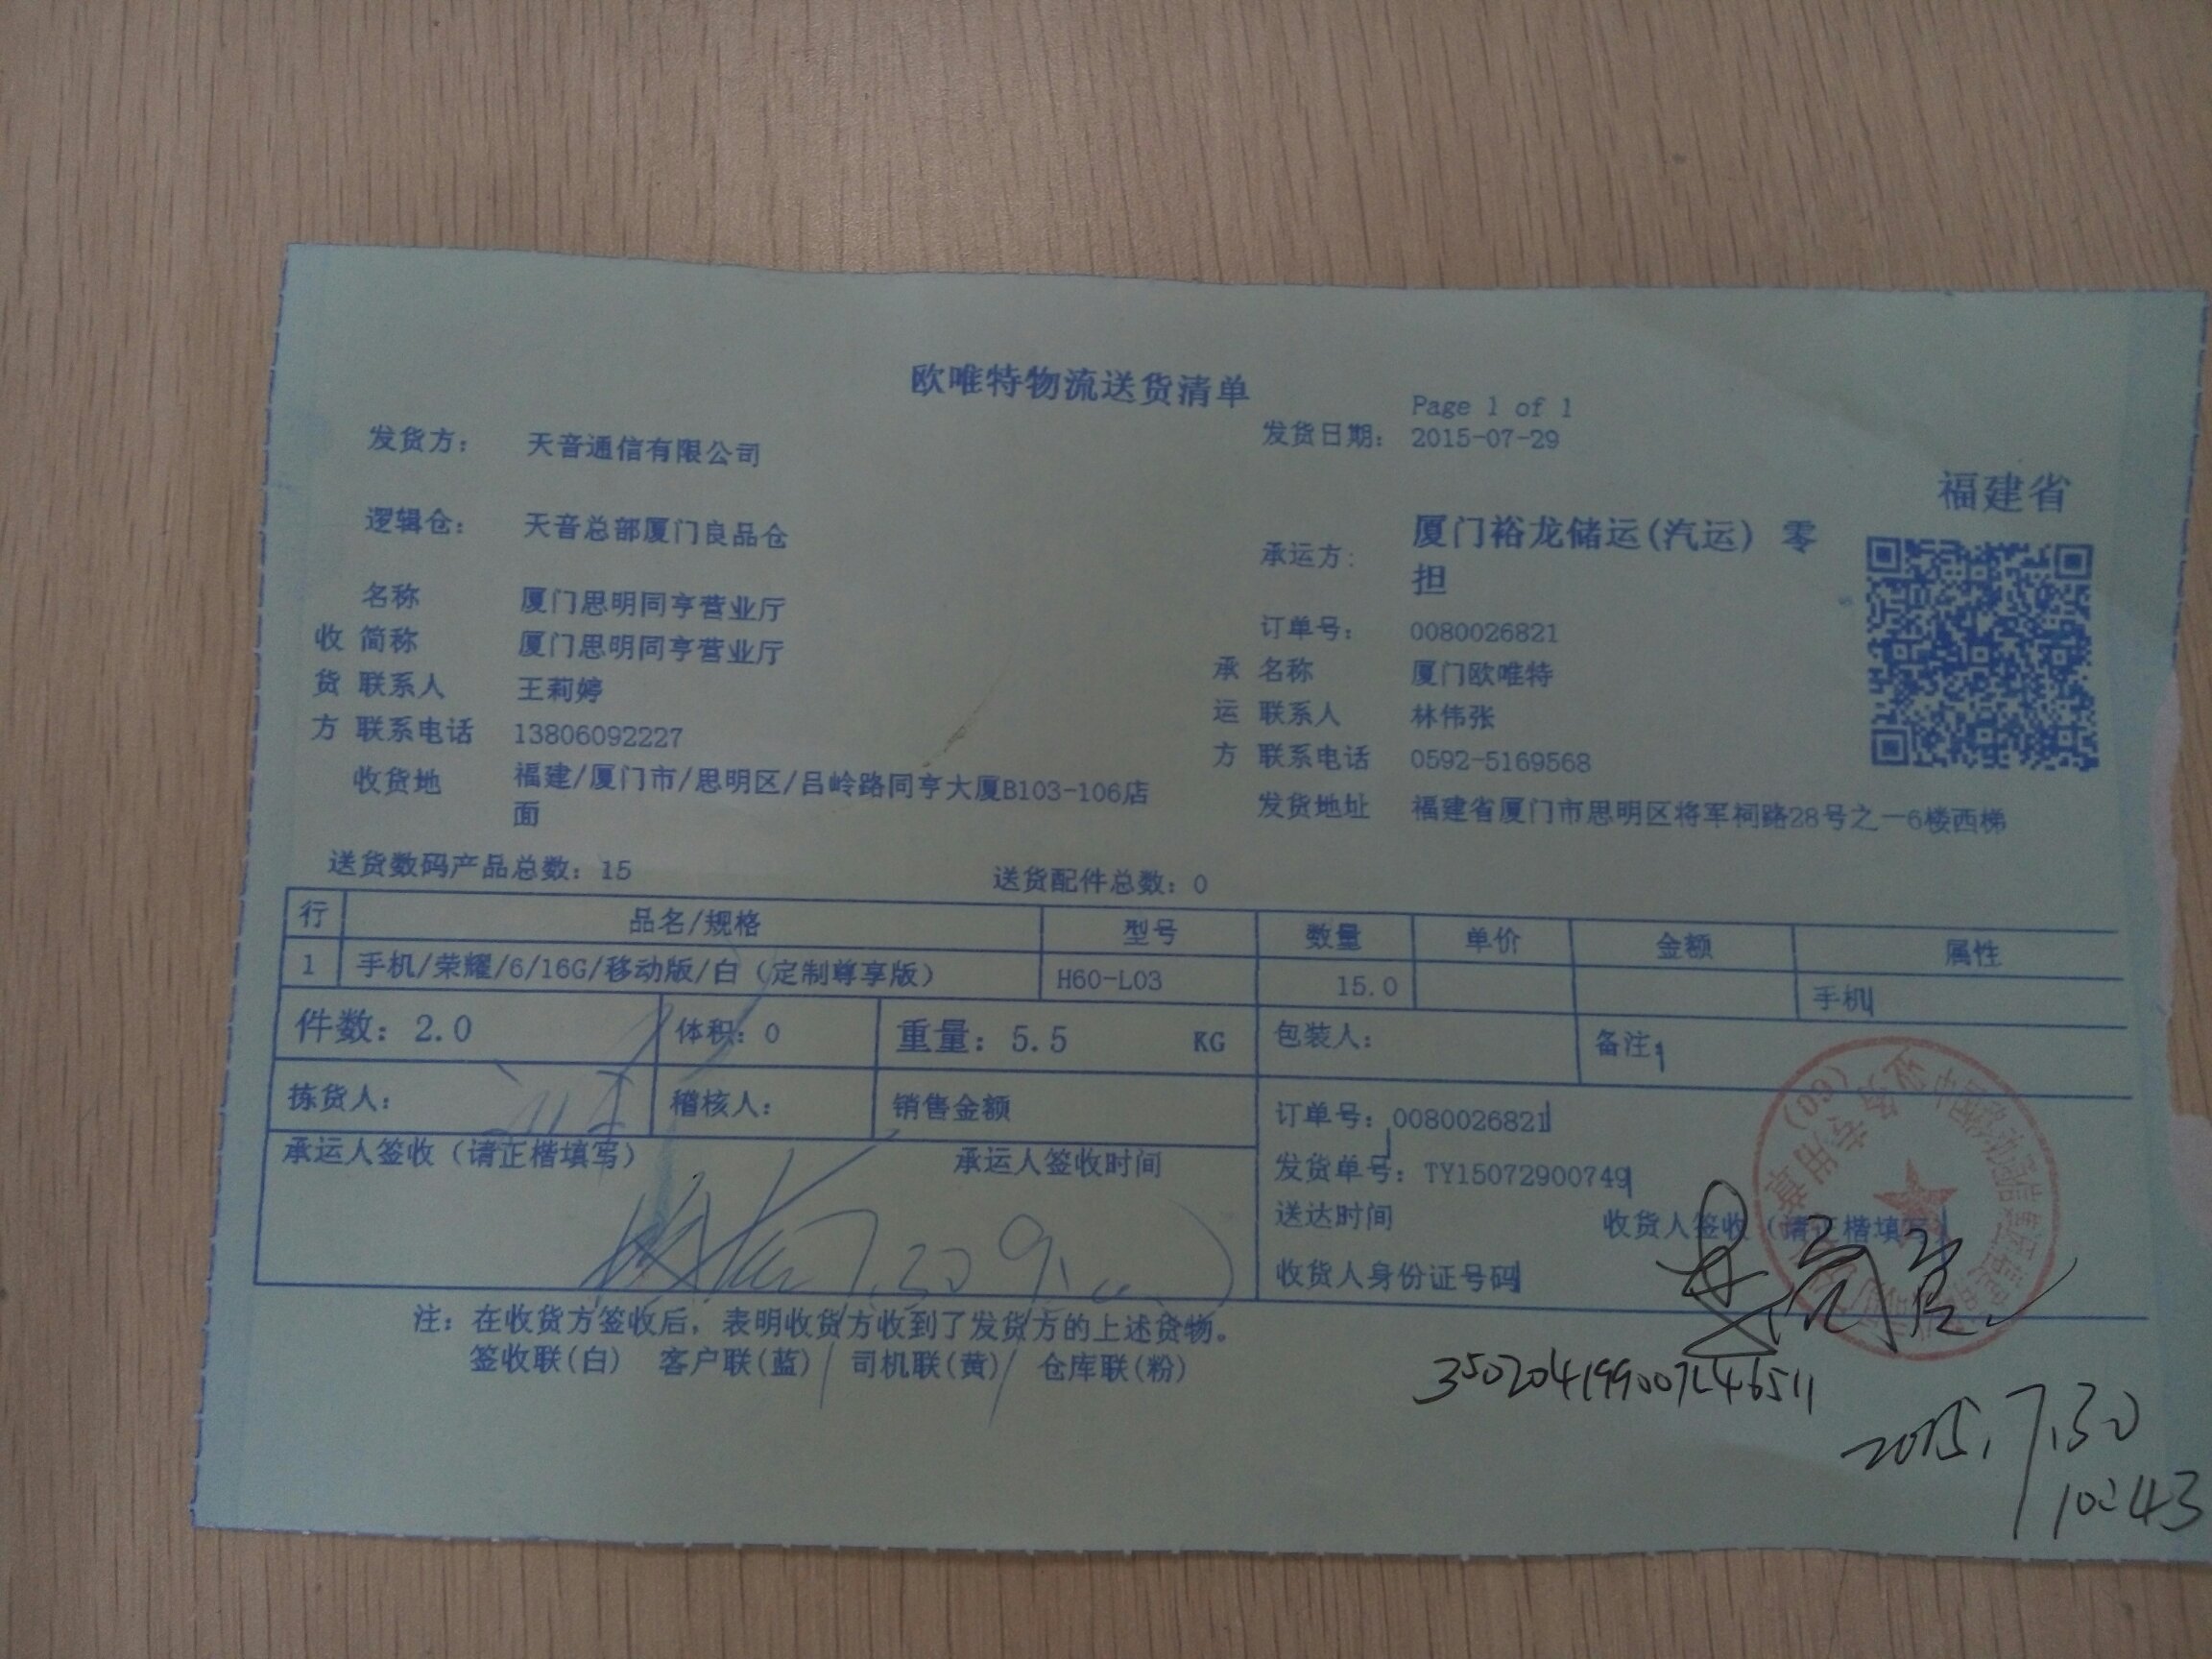 欧唯特物流送货清单
Page 1 of 1
发货方： 天音通信有限公司 发货日期： 2015-07-29
福建省
逻辑仓： 天音总部厦门良品仓 承运方： 厦门裕龙储运(汽运) 零担
名称 厦门思明同亨营业厅 订单号： 0080026821
收 简称 厦门思明同亨营业厅 承 名称 厦门欧唯特
货 联系人 王莉婷 运 联系人 林伟张
方 联系电话 13806092227 方 联系电话 0592-5169568
收货地 福建/厦门市/思明区/吕岭路同亨大厦B103-106店面 发货地址 福建省厦门市思明区将军祠路28号之一6楼西梯
送货数码产品总数：15 送货配件总数：0
行 品名/规格 型号 数量 单价 金额 属性
1 手机/荣耀/6/16G/移动版/白（定制尊享版） H60-L03 15.0 手机
件数：2.0 体积：0 重量：5.5 KG 包装人： 备注：
拣货人： 稽核人： 销售金额 订单号：0080026821
承运人签收（请正楷填写） 承运人签收时间 发货单号：TY15072900749
送达时间 收货人签收（请正楷填写）
7.30
收货人身份证号码
注：在收货方签收后，表明收货方收到了发货方的上述货物。
签收联(白) 客户联(蓝) 司机联(黄) 仓库联(粉)
2015.7.30
10:43
业务专用章
(60)